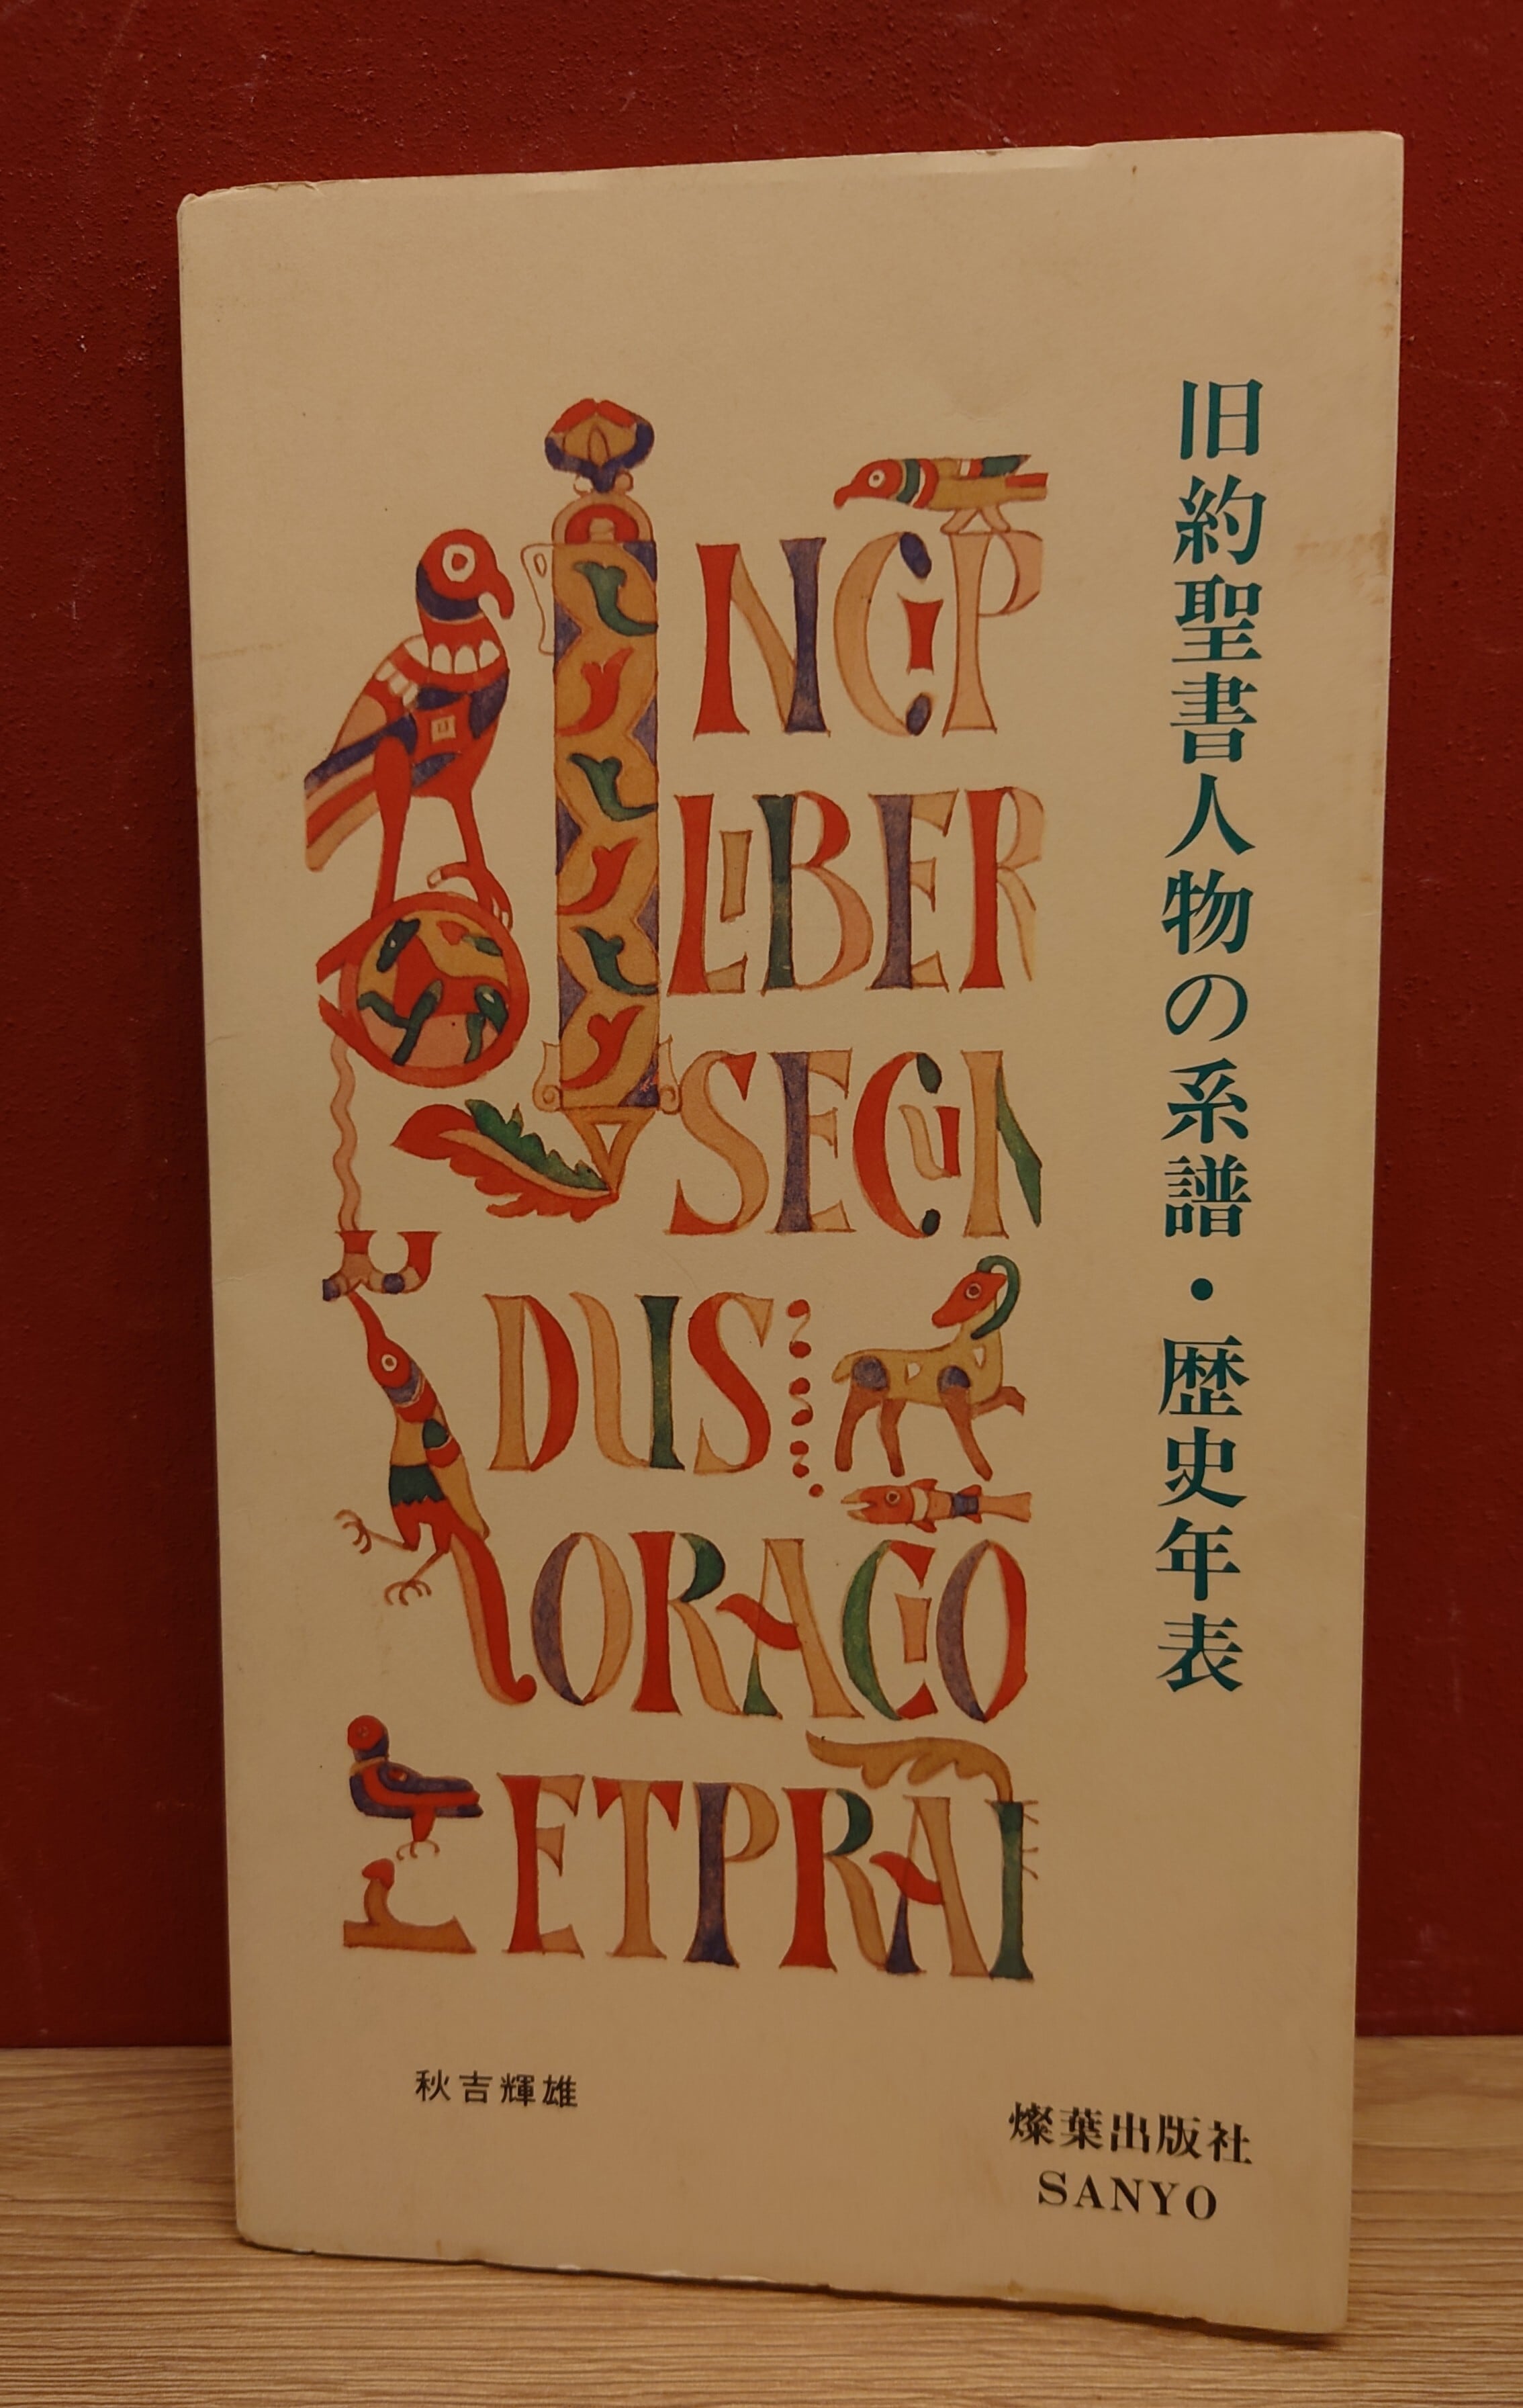 旧約聖書人物の系譜・歴史年表
INCIP
LIBER
SECUN
DUS
ORACIO
ETPRAI
秋吉輝雄
燦葉出版社
SANYO